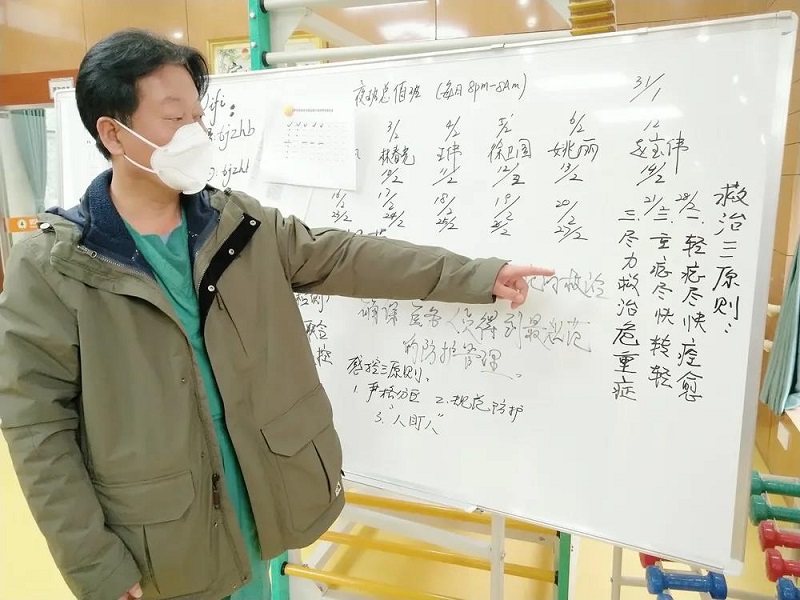 夜班总值班 (每日8pm-8Am)
31/1
3/2 4/2 5/2 6/2
徐卫国 姚丽
王伟
10/2 11/2 12/2 13/2 14/2
16/2 17/2 18/2 19/2 20/2 21/2
23/2 24/2 25/2 27/2 28/2
wifi:
tjzhb
救治三原则:
一、轻症尽快痊愈
二、重症尽快转轻
三、尽力救治危重症
的救治
确保医务人员得到最规范
的防护管理。
感控三原则:
1. 严格分区 2. 规范防护
3. "人盯人"